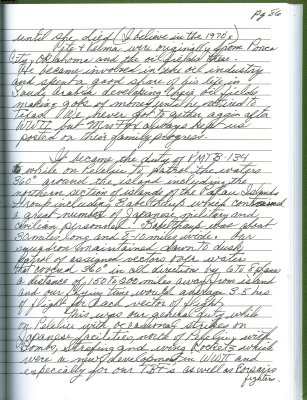 Pg 86
until she died (I believe in the 1970s)
Pete & Velma were originally from Ponca
City, Oklahoma and the oil fields there.
He became involved in the oil industry
and spent a good share of his life in
Saudi Arabia developing their oil fields
making gobs of money until he retired to
Texas. We never got together again after
WWII but Mrs Fox always kept us
posted on their family progress.
It became the duty of VMTB-134
while on Pelelieu to patrol the waters
360° around the island including the
northern section of islands of the Palau Islands
Group including Babelthuap which contained
a great number of Japanese military and
civilian personnel. Babelthuap was about
30 miles long and 8-10 miles wide. Our
squadron maintained dawn to dusk
patrol of assigned vectors over water
that covered 360° in all direction by 6 to 8 planes
a distance of 150 to 200 miles away from island
and our flying time would average 3.5 hrs
of flight for each vector of flight.
This was our general duty while
on Pelelieu with occasional strikes on
Japanese facilities north of Pelelieu with
Bombs, strafing and wing Rockets which
were a new development in WWII and
especially for our TBF's as well as Corsairs
fighters.